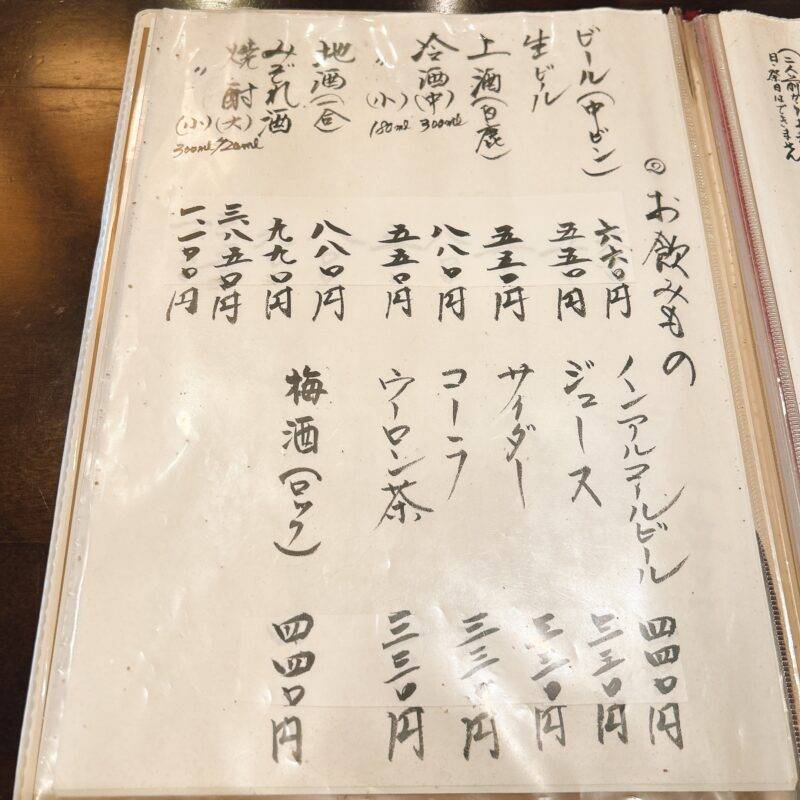 (二人前から
日・祭日はできません
◎お飲みもの
ビール(中ビン) 六六〇円
生ビール 五五〇円
上酒(白鹿) 五五〇円
冷酒(中)300ml 八八〇円
〃(小)180ml 五五〇円
地酒(一合) 八八〇円
みぞれ酒 九九〇円
焼酎(大)720ml 三、八五〇円
〃(小)300ml 一、一〇〇円
ノンアルコールビール 四四〇円
ジュース 三三〇円
サイダー 三三〇円
コーラ 三三〇円
ウーロン茶 三三〇円
梅酒(ロック) 四四〇円